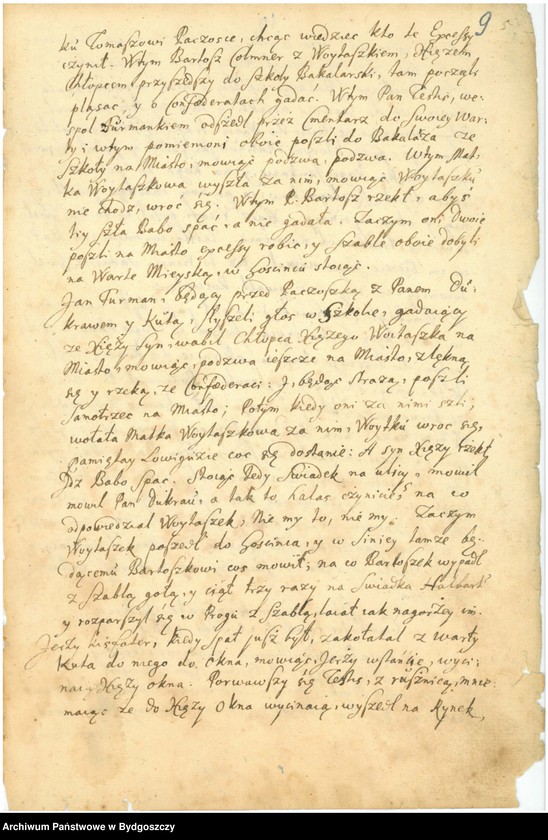 9
5
ku Tomaszowi Paczosce, chcąc wiedziec kto te Excessy
czynił. Wtym Bartosz Colmner z Woytaszkiem, Xięzem
Chłopcem przyszedszy do Szkoły Bakalarski, tam poczęli
pląsac, y o Confœderatach gadac. Wtym Pan Testis, we-
społ Turmankiem odszedł przez Cmentarz do Swoiey War-
ty; wtym pomienioni oboie poszli do Bakałarza ze
Szkoły na Miasto, mowiąc podzwa, podzwa. Wtym Mat-
ka Woytaszkowa wyszła za nim, mowiąc Woytaszku
nie chodz, wroc się. Wtym P. Bartosz rzekł, abyś
ty szła Babo spac, a nie gadała. Zaczym oni dwoie
poszli na Miasto excessy robic, y Szable oboie dobyli
na Warte Mieyską, w Goscincu stoiąc.
Jan Turman, będący przed Paczoszką z Panem Du-
krawem y Kutą, słyszeli głos w Szkole, gadaiący
ze Xięży Syn, wabił Chłopca Xiężego Woitaszka na
Miasto, mowiąc, podzwa ieszcze na Miasto, zlękną
się y rzeką, ze Confœderaci: J, będąc strażą, poszli
samotrzec na Miasto; Potym kiedy oni za nimi szli,
wołała Matka Woytaszkowa za nim, Woytkú wroc się,
pamiętay coc się dostanie: A syn Xięży rzekł
Jdz Babo Spac. Stoiąc tedy Swiadek na ulicy, mowił
mowil Pan Dukrau, a tak to halas czynicie, na co
odpowiedział Woytaszek, Nie my to, nie my. Zaczym
Woytaszek poszedł do Goscinca, y w Siniey tamze bę-
dącemu Bartoszkowi cos mowił; na co Bartoszek wypadł
z Szablą gołą, y ciął trzy razy na Swiadka Halbart
y rozparszył się w Progu z Szablą, łaiał iak nagorzey im.
Jerzy, kiedy Spał już był, zakołatał z Warty
Kuta do niego do okna, mowiąc, Jerzy wstańcie, wyci-
naią Xięzy okna. Porwawszy się Testis, z rusznicą, mnie-
maiąc ze do Xięzy Okna wycinaią, wyszedł na Rynek,
Archiwum Państwowe w Bydgoszczy